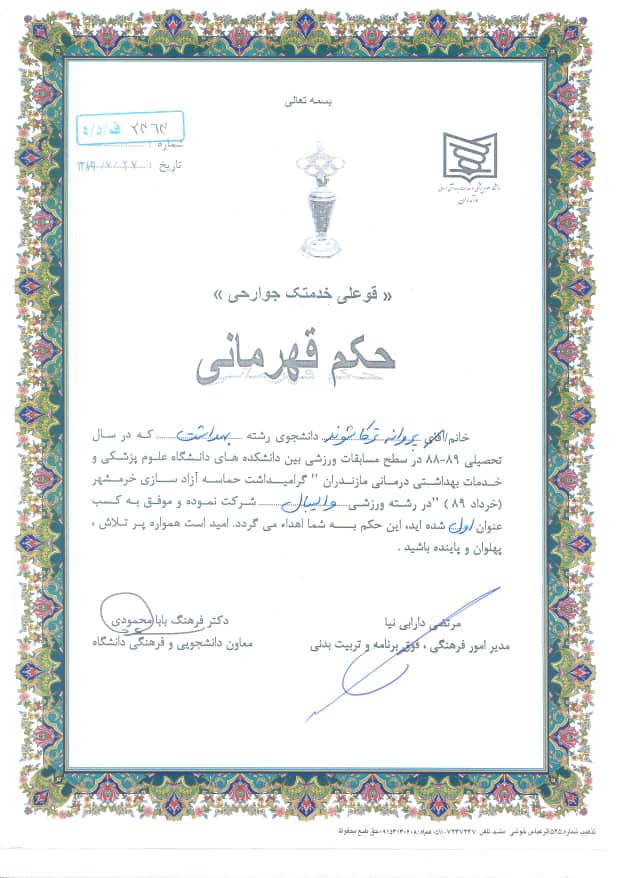 بسمه تعالی
شماره : ۲۳۶۳ ف/د/۴
تاریخ : ۱۳۸۹/۷/۲۷
دانشگاه علوم پزشکی و خدمات بهداشتی درمانی
مازندران
« قو علی خدمتک جوارحی »
حکم قهرمانی
خانم/آقای پروانه ترکاشوند دانشجوی رشته بهداشت که در سال
تحصیلی ۸۹-۸۸ در سطح مسابقات ورزشی بین دانشکده های دانشگاه علوم پزشکی و
خدمات بهداشتی درمانی مازندران " گرامیداشت حماسه آزاد سازی خرمشهر
(خرداد ۸۹ ) "در رشته ورزشی والیبال شرکت نموده و موفق به کسب
عنوان اول شده اید، این حکم به شما اهداء می گردد. امید است همواره پر تلاش ،
پهلوان و پاینده باشید .
مرتضی دارابی نیا
مدیر امور فرهنگی ، فوق برنامه و تربیت بدنی
دکتر فرهنگ بابا محمودی
معاون دانشجویی و فرهنگی دانشگاه
تذهیب شماره ۵۲۵ اثر عباس خوشی مشهد تلفن ۷۲۳۷۲۳۷-۰۵۱۱ همراه: ۰۹۱۵۳۱۳۰۴۰۸ حق طبع محفوظ